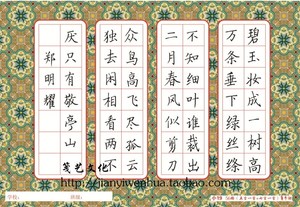 碧玉妆成一树高
万条垂下绿丝绦
不知细叶谁裁出
二月春风似剪刀
众鸟高飞尽孤云
独去闲相看两不
厌只有敬亭山
郑明耀
笺艺文化
http://jianyiwenhua.taobao.com